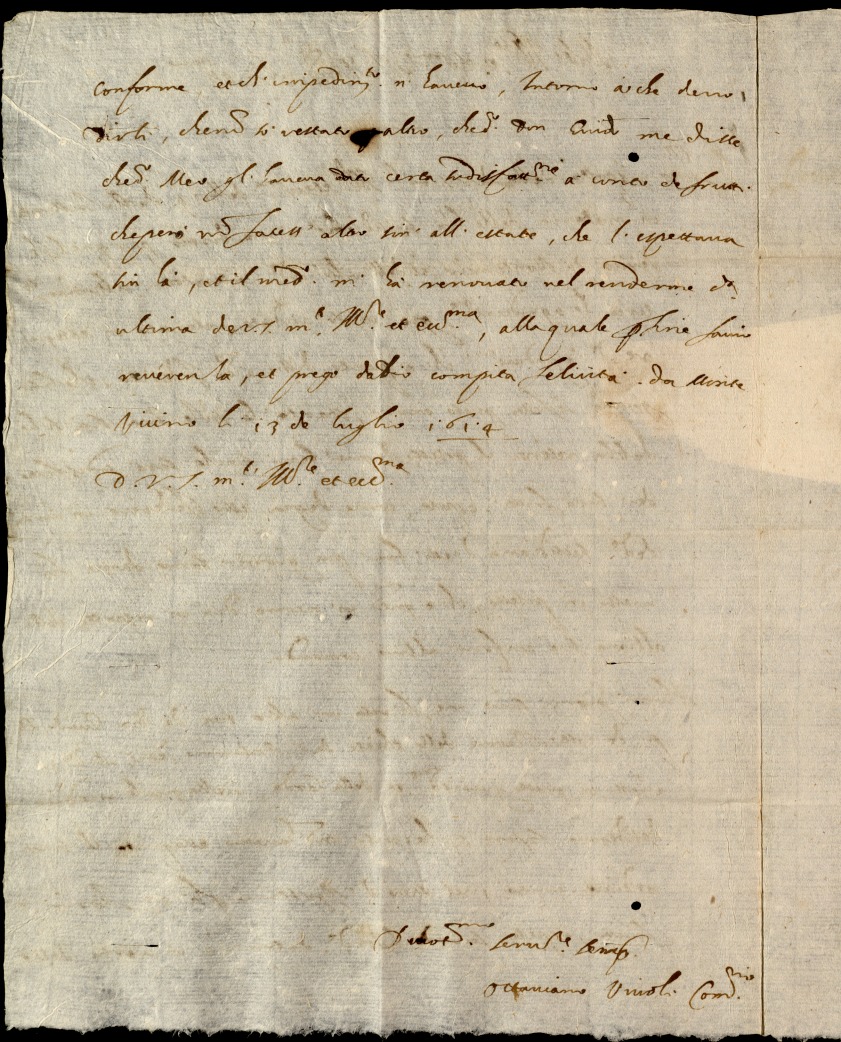 conforme, et ch' impedim.to n' haveno, Intorno à che devo
dirli, che no si restato altro, che d.o Don Guido me disse
che d.o Meo gl' haveva dato certa sodisfatt.ne à conto de frutti
che però no facess altro sin' all' estate, che l' aspettava
sin là, et il med.o m' ha renovato nel renderme d.a
ultima de V.S. m.to Ill.re et ecc.ma, alla quale p fine faccio
reverenza, et prego da Dio compita felicità. da Monte
Vicino li 13 de luglio 1614
D. V. S. m.to Ill.re et ecc.ma
Devot.mo serv.re semp.
Octaviano Vivoli Com.rio